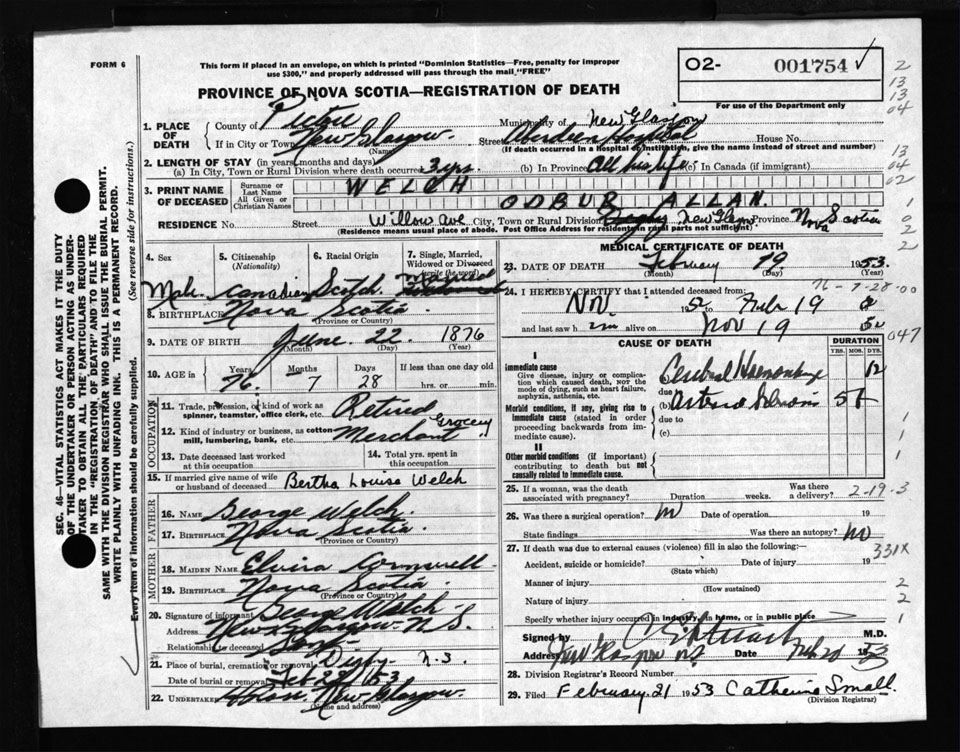 FORM 6
This form if placed in an envelope, on which is printed "Dominion Statistics—Free, penalty for improper
use $300," and properly addressed will pass through the mail "FREE"
PROVINCE OF NOVA SCOTIA—REGISTRATION OF DEATH
O2- 001754 ✓
For use of the Department only
1. PLACE OF DEATH
County of Pictou Municipality of New Glasgow
If in City or Town New Glasgow Street Aberdeen Hospital House No.
(Name) (If death occurred in a Hospital or Institution, give the name instead of street and number)
2. LENGTH OF STAY (in years, months and days)
(a) In City, Town or Rural Division where death occurred 3 yrs. (b) In Province All his life (c) In Canada (if immigrant)
3. PRINT NAME OF DECEASED
Surname or Last Name WELCH
All Given or Christian Names ODBUR ALLAN.
RESIDENCE No. Street Willow Ave City, Town or Rural Division New Glasgow Province Nova Scotia
(Residence means usual place of abode. Post Office Address for residents in rural parts not sufficient)
4. Sex
Male
5. Citizenship (Nationality)
Canadian
6. Racial Origin
Scotch
7. Single, Married, Widowed or Divorced (write the word)
Married
8. BIRTHPLACE Nova Scotia
(Province or Country)
9. DATE OF BIRTH June 22 1876
(Month) (Day) (Year)
10. AGE in Years Months Days If less than one day old
76 7 28 hrs. or min.
OCCUPATION
11. Trade, profession, or kind of work as spinner, teamster, office clerk, etc. Retired
12. Kind of industry or business, as cotton mill, lumbering, bank, etc. Grocery Merchant
13. Date deceased last worked at this occupation
14. Total yrs. spent in this occupation
15. If married give name of wife or husband of deceased Bertha Louise Welch
FATHER
16. NAME George Welch
17. BIRTHPLACE Nova Scotia
(Province or Country)
MOTHER
18. MAIDEN NAME Elvira
19. BIRTHPLACE Nova Scotia
(Province or Country)
20. Signature of informant George Welch
Address New Glasgow N.S.
Relationship to deceased Son
21. Place of burial, cremation or removal Digby N.S.
Date of burial or removal Feb 53
22. UNDERTAKER New Glasgow
(Name and address)
MEDICAL CERTIFICATE OF DEATH
23. DATE OF DEATH February 19 1953
(Month) (Day) (Year)
76-7-28-00
24. I HEREBY CERTIFY that I attended deceased from:
Nov 1952 to Feb 19
and last saw him alive on Nov 19
047
CAUSE OF DEATH
DURATION
YRS. MOS. DYS.
I
Immediate cause
Give disease, injury or complication which caused death, not the mode of dying, such as heart failure, asphyxia, asthenia, etc.
(a) Cerebral Haemorrhage 12
due to
Morbid conditions, if any, giving rise to immediate cause (stated in order proceeding backwards from immediate cause).
(b) Arterio Sclerosis 5+
due to
(c)
II
Other morbid conditions (if important) contributing to death but not causally related to immediate cause.
25. If a woman, was the death associated with pregnancy? Duration weeks. Was there a delivery? 2-19-3
26. Was there a surgical operation? No Date of operation 19
State findings Was there an autopsy? No
331X
27. If death was due to external causes (violence) fill in also the following:—
Accident, suicide or homicide? Date of injury 19
(State which)
Manner of injury
(How sustained)
Nature of injury
Specify whether injury occurred in industry, in home, or in public place
Signed by M.D.
Address New Glasgow NS Date Feb 20 1953
28. Division Registrar's Record Number
29. Filed February 21 1953 Catherine Small.
(Division Registrar)
SEC. 46—VITAL STATISTICS ACT MAKES IT THE DUTY
OF THE UNDERTAKER OR PERSON ACTING AS UNDERTAKER TO OBTAIN ALL THE PARTICULARS REQUIRED
IN THE "REGISTRATION OF DEATH" AND TO FILE THE
SAME WITH THE DIVISION REGISTRAR WHO SHALL ISSUE THE BURIAL PERMIT.
WRITE PLAINLY WITH UNFADING INK. THIS IS A PERMANENT RECORD.
Every item of information should be carefully supplied. (See reverse side for instructions.)
2
13
13
04
13
04
02
1
0
2
2
1
1
1
2
2
1